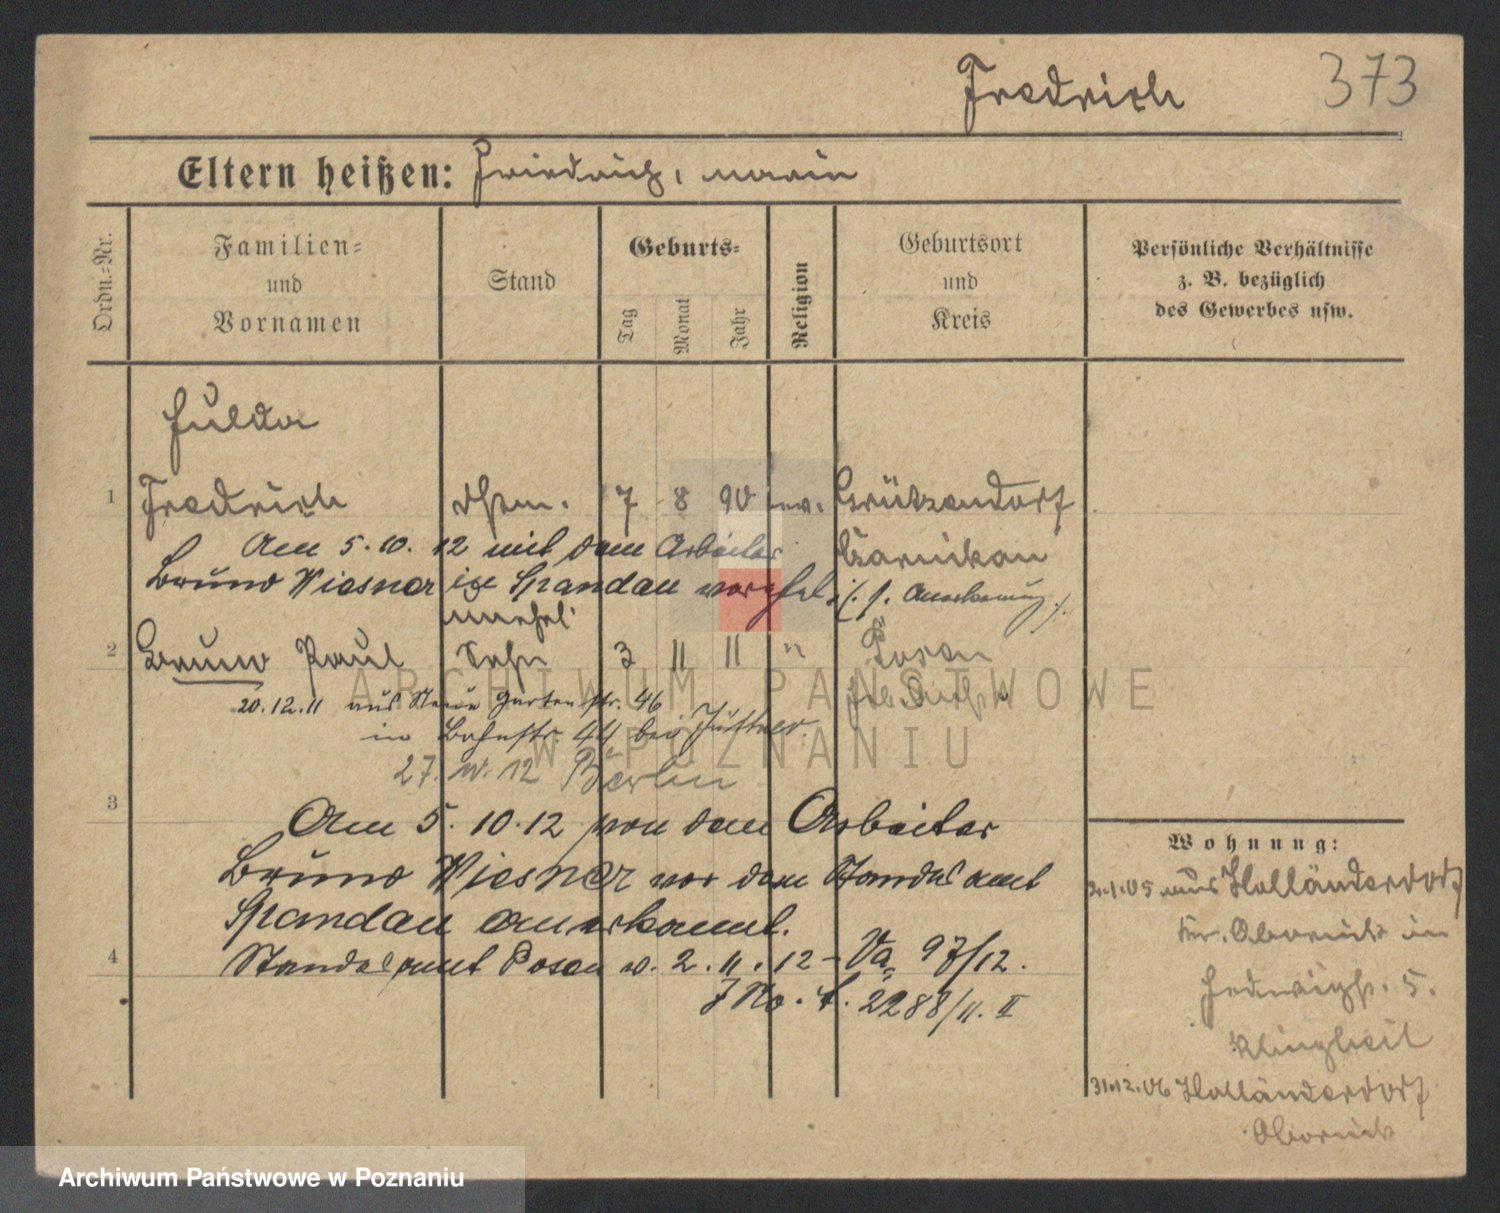 Fredrich 373
Eltern heißen: Friedrich,
Ordn.-Nr.
Familien-
und
Vornamen
Stand
Geburts-
Tag
Monat
Jahr
Religion
Geburtsort
und
Kreis
Persönliche Verhältnisse
z. B. bezüglich
des Gewerbes usw.
Hulda
1 Fredrich 7 8 90 ev. Grützendorf
Am 5.10.12 mit dem Arbeiter Czarnikau
Bruno Wiesner in Spandau verehel. (s. Anerkennung)
unehel.
2 Bruno Paul Sohn 3 11 11 " Posen
20.12.11 aus Neue Gartenstr. 46
in Bahnstr. 44 bei
27. 12 Berlin
3 Am 5.10.12 von dem Arbeiter
Bruno Wiesner vor dem Standesamt
Spandau anerkannt.
4 Standesamt Posen v. 2.11.12 - Va 97/12.
J No. f. 2288/11. II
Wohnung:
2.1.05 aus Holländerdorf
Kr. Obornik in
Hedwigstr. 5.
31.12.06 Holländerdorf
Obornik
ARCHIWUM PAŃSTWOWE
W POZNANIU
Archiwum Państwowe w Poznaniu